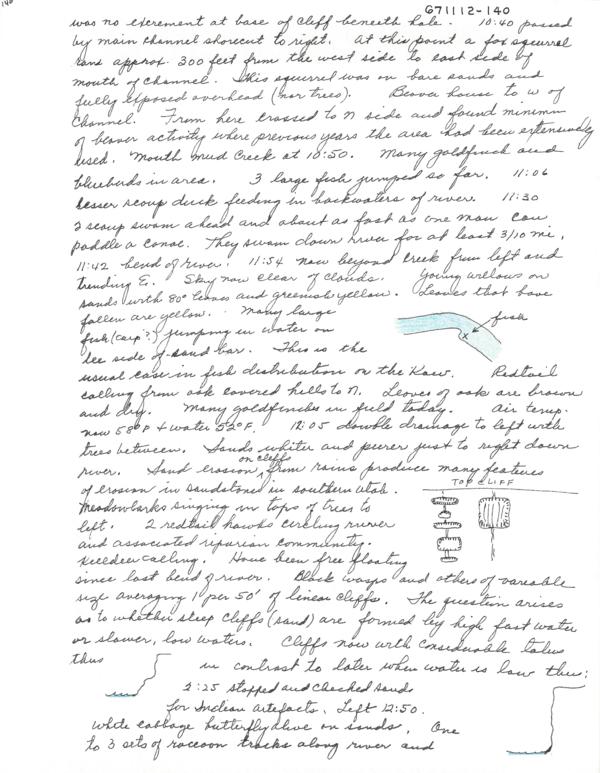 140
671112-140
was no excrement at base of cliff beneath hole. 10:40 passed
by main channel shorecut to right. At this point a fox squirrel
ran approx. 300 feet from the west side to east side of
mouth of channel. This squirrel was on bare sands and
fully exposed overhead (nor trees). Beaver house to W of
Channel. From here crossed to N side and found minimum
of beaver activity where previous years the area had been extensively
used. Mouth Mud Creek at 10:50. Many goldfinch and
bluebirds in area. 3 large fish jumped so far. 11:06
Lesser scoup duck feeding in backwaters of river. 11:30
2 scoup swam ahead and about as fast as one man can
paddle a canoe. They swam down river for at least 3/10 mi.
11:42 bend of river. 11:54 now beyond creek from left and
trending E. Sky now clear of clouds. Young willows on
sands with 80% leaves and greenish yellow. Leaves that have
fallen are yellow. Many large
fish
x
fish (carp?) jumping in water on
lee side of sand bar. This is the
usual case in fish distribution on the Kaw. Redtail
calling from oak covered hills to N. Leaves of oak are brown
and dry. Many goldfinches in field today. Air temp.
now 58°F & water 52°F. 12:05 double drainage to left with
trees between. Sands whiter and purer just to right down
river. Sand erosion on cliffs from rains produce many features
of erosion in sandstone in southern Utah.
TOP CLIFF
Meadowlarks singing in tops of trees to
left. 2 redtail hawks circling river
and associated riparian community.
Killdeer calling. Have been free floating
since last bend of river. Black wasps and others of variable
size averaging 1 per 50' of linear cliffs. The question arises
as to whether steep cliffs (sand) are formed by high fast water
or slower, low waters. Cliffs now with considerable talus
thus
in contrast to later when water is low thus:
2:25 stopped and checked sands
for Indian artefacts. Left 12:50.
White cabbage butterfly alive on sands. One
to 3 sets of raccoon tracks along river and